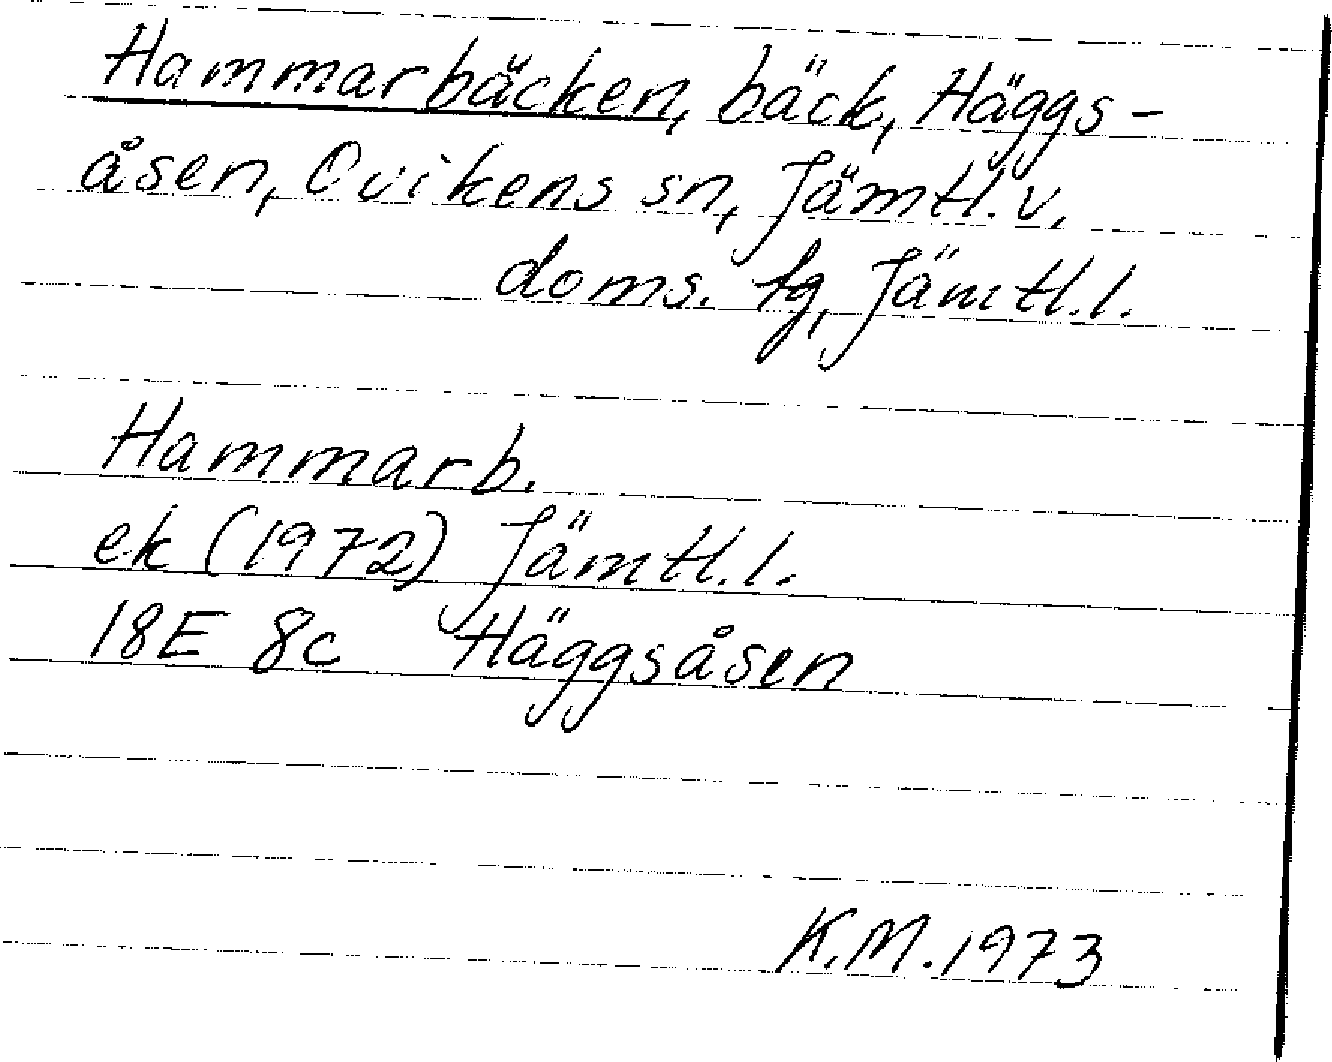 Hammarbäcken, bäck, Häggs-
åsen, Ovikens sn, Jämtl. v.
doms. fg, Jämtl. l.
Hammarb.
ek (1972) Jämtl. l.
18E 8c Häggsåsen
K.M. 1973